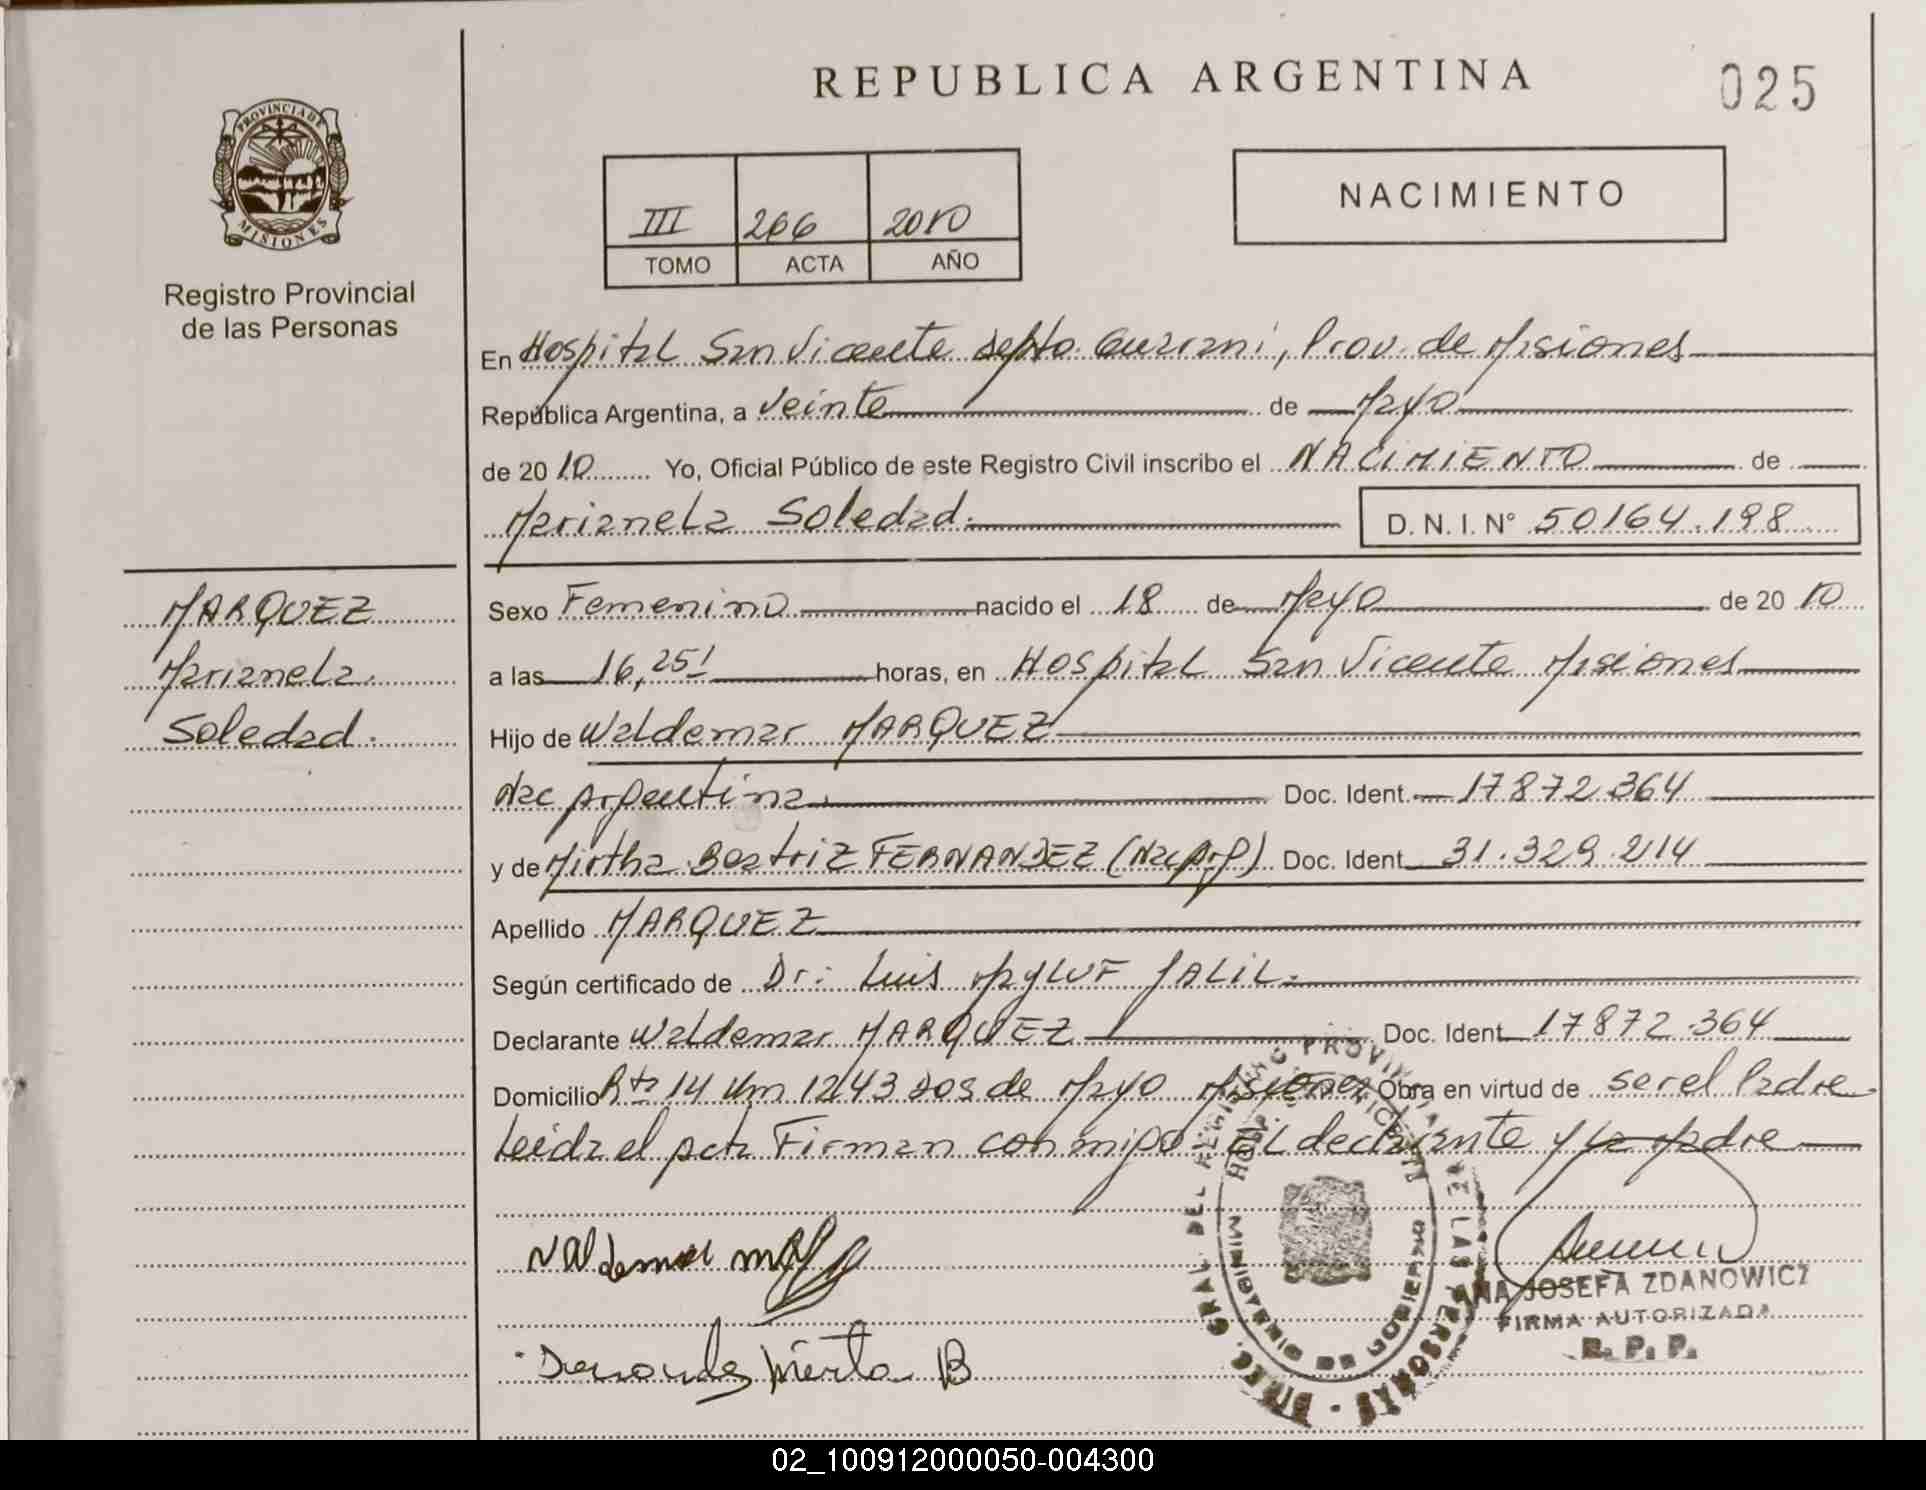 REPUBLICA ARGENTINA
025
PROVINCIA DE
MISIONES
Registro Provincial
de las Personas
III 266 2010
TOMO ACTA AÑO
NACIMIENTO
En Hospital San Vicente depto. Guarani, Prov. de Misiones
República Argentina, a veinte de Mayo
de 20 10 Yo, Oficial Público de este Registro Civil inscribo el NACIMIENTO de
Marianela Soledad.
D. N. I. N° 50164.198
MARQUEZ
Marianela
Soledad.
Sexo Femenino nacido el 18 de Mayo de 20 10
a las 16,25' horas, en Hospital San Vicente Misiones
Hijo de Waldemar MARQUEZ
Nac Argentina. Doc. Ident. 17872.364
y de Mirtha Beatriz FERNANDEZ (Nac Arg) Doc. Ident. 31.329.214
Apellido MARQUEZ
Según certificado de Dr: Luis JALIL.
Declarante Waldemar MARQUEZ Doc. Ident. 17872.364
Domicilio Rta 14 Km 1243 Dos de Mayo Misiones Obra en virtud de ser el Padre
Leida el acta Firman conmigo El declarante y la Madre
Valdemar
Mirta B
DIREC. GRAL. DEL REGISTRO PROVINCIAL DE LAS PERSONAS
ANA JOSEFA ZDANOWICZ
FIRMA AUTORIZADA
R. P. P.
02_100912000050-004300